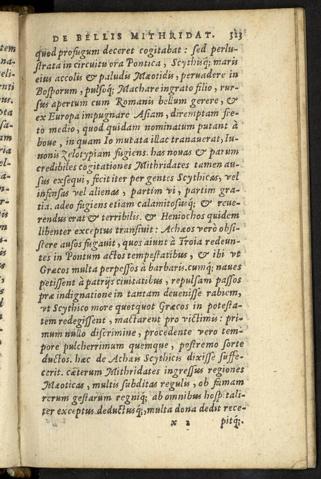 DE BELLIS MITHRIDAT. 323
quod profugum deceret cogitabat: sed perlu-
strata in circuitu ora Pontica, Scythisq; maris
eius accolis & paludis Mæotidis, peruadere in
Bosporum, pulsoq; Machare ingrato filio, rur-
sus apertum cum Romanis bellum gerere, &
ex Europa impugnare Asiam, diremptam fre-
to medio, quod quidam nominatum putant à
boue, in quam Io mutata illac tranauerat, Iu-
nonis Zelotypiam fugiens. has nouas & parum
credibiles cogitationes Mithridates tamen au-
sus exsequi, fecit iter per gentes Scythicas, vel
infensas vel alienas, partim vi, partim gra-
tia. adeo fugiens etiam calamitosusq; & reue-
rendus erat & terribilis. & Heniochos quidem
libenter exceptus transiuit: Achæos verò obsi-
stere ausos fugauit, quos aiunt à Troia redeun-
tes in Pontum actos tempestatibus, & ibi vt
Græcos multa perpessos à barbaris. cumq; naues
petissent à patrijs ciuitatibus, repulsam passos
præ indignatione in tantam deuenisse rabiem,
vt Scythico more quotquot Græcos in potesta-
tem redegissent, mactarent pro victimis: pri-
mum nullo discrimine, procedente vero tem-
pore pulcherrimum quemque, postremo sorte
ductos. hæc de Achæis Scythicis dixisse suffe-
cerit. cæterum Mithridates ingressus regiones
Mæoticas, multis subditas regulis, ob famam
rerum gestarum regniq; ab omnibus hospitali-
ter exceptus deductusq;, multa dona dedit rece-
x 2 pitq;